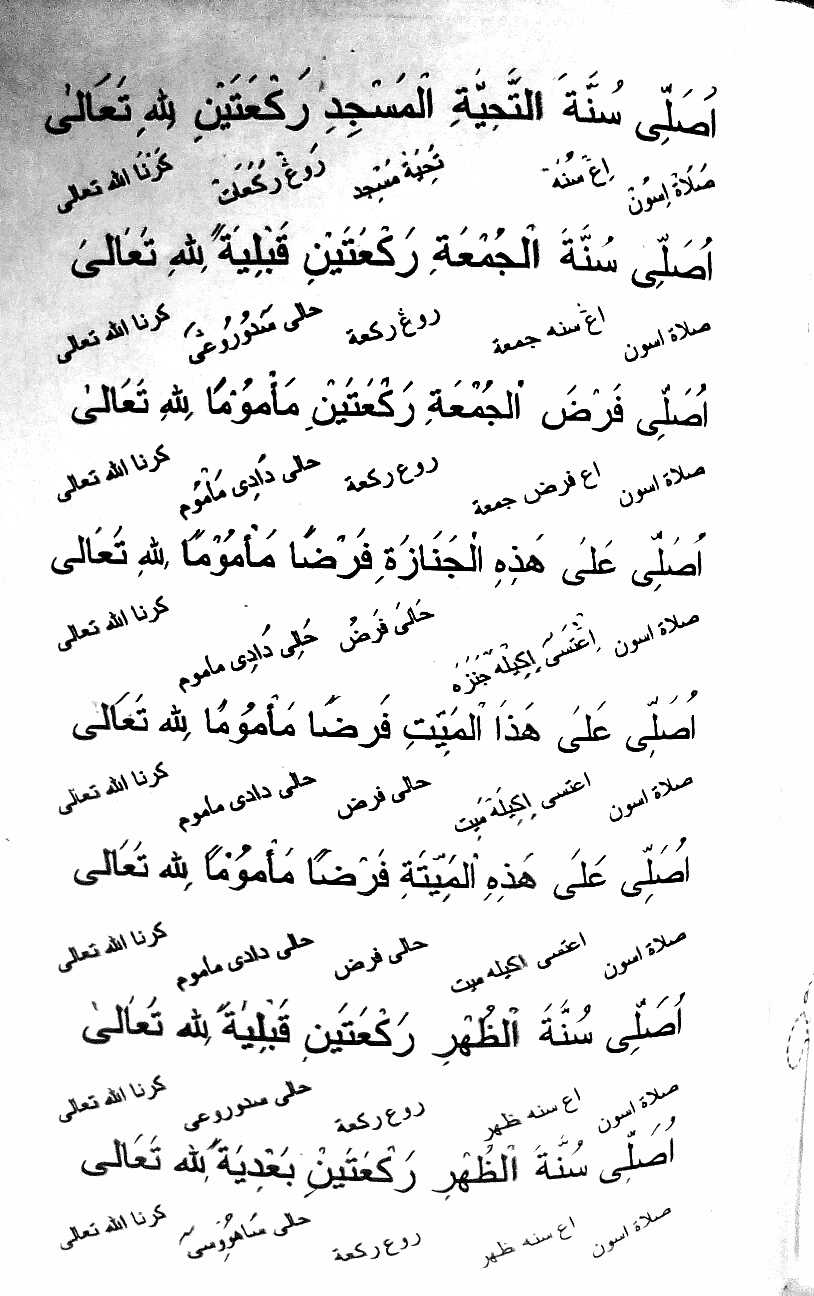 اُصَلِّى سُنَّةَ التَّحِيَّةِ الْمَسْجِدِ رَكْعَتَيْنِ لِلهِ تَعَالىٰ
صَلَاةْ اِسونْ اِڠْ سُنَةْ تَحِيَةْ مَسْجِد رَوڠْ رَكَعَتْ كَرْنَا الله تعالى
اُصَلِّى سُنَّةَ الْجُمْعَةِ رَكْعَتَيْنِ قَبْلِيَةً لِلهِ تَعَالىَ
صلاة اسون اڠ سنه جمعة روڠ ركعة حالى سَدوُروُعىَ كرنا الله تعالى
اُصَلِّى فَرْضَ الْجُمْعَةِ رَكْعَتَيْنِ مَأْمُوْمًا لِلهِ تَعَالىٰ
صلاة اسون اع فرض جمعة روع ركعة حالى دَادِى مَأْمُوم كرنا الله تعالى
اُصَلِّى عَلىَ هَذِهِ الْجَنَازَةِ فَرْضًا مَأْمُوْمًا لِلهِ تَعَالى
صلاة اسون اِعْتسىَ اِكِيْلَه جَنَزَه حَالىَ فَرَضُ حَالِى دَادِى ماموم كرنا الله تعالى
اُصَلِّى عَلىَ هَذَا الْمَيِّتِ فَرضًا مَأْمُومًا لِلهِ تَعَالى
صلاة اسون اعتسى اِكِيلَهَ مَيِت حالى فرض حالى دادى ماموم كرنا الله تعالى
اُصَلِّى عَلَى هَذِهِ الْمَيِّتَةِ فَرْضًا مَأْمُوْمًا لِلهِ تَعَالَى
صلاة اسون اعتسى اكيله ميت حالى فرض حالى دادى ماموم كرنا الله تعالى
اُصَلِّى سُنَّةَ الْظُهْرِ رَكْعَتَينِ قَبْلِيَةً لِلهِ تَعَالىٰ
صلاة اسون اع سنه ظهر روع ركعة حالى سدوروعى كرنا الله تعالى
اُصَلِّى سُنَّةَ الْظُهْرِ رَكْعَتَيْنِ بَعْدِيَةً لِلهِ تَعَالى
صلاة اسون اع سنه ظهر روع ركعة حالى سَاهوُوِسىَ كرنا الله تعالى